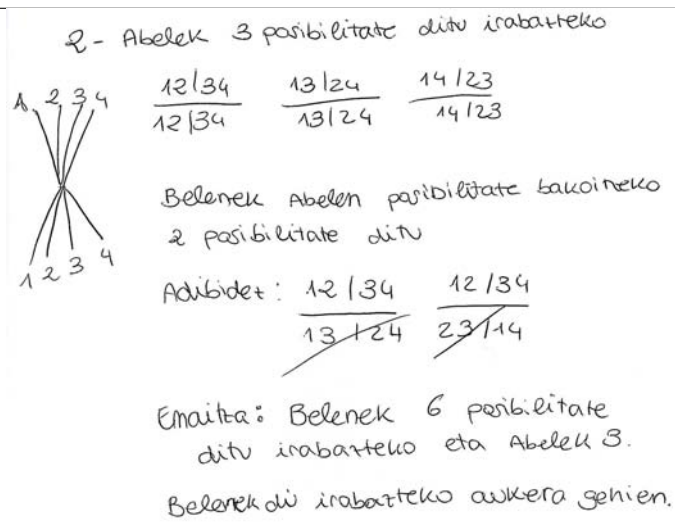 2- Abelek 3 posibilitate ditu irabazteko
1 2 3 4
12/34 13/24 14/23
12/34 13/24 14/23
Belenek Abelen posibilitate bakoitneko
2 posibilitate ditu
1 2 3 4
Adibidez: 12/34 12/34
13/24 23/14
Emaitza: Belenek 6 posibilitate
ditu irabazteko eta Abelek 3.
Belenek du irabazteko aukera gehien.